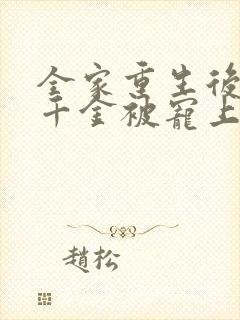 全家重生後
千金被寵上
趙松